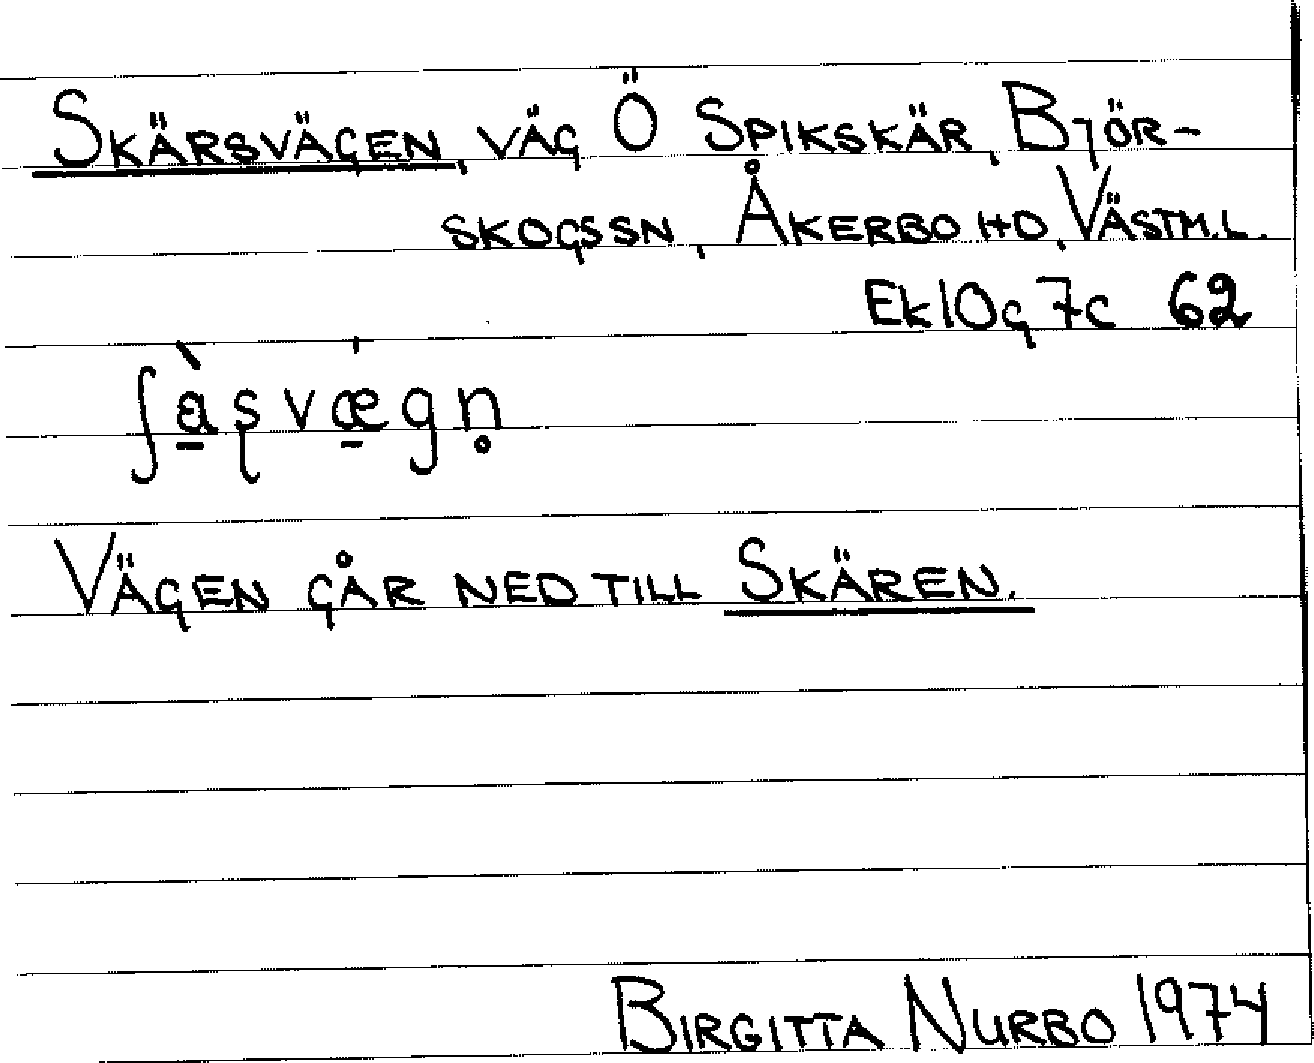 Skärsvägen, väg Ö Spikskär, Björ-
skogssn, Åkerbo hd, Västm.l.
Ek 10g 7c 62
ʃà̱ʂvæ̱gn̥
Vägen går ned till Skären.
Birgitta Nurbo 1974